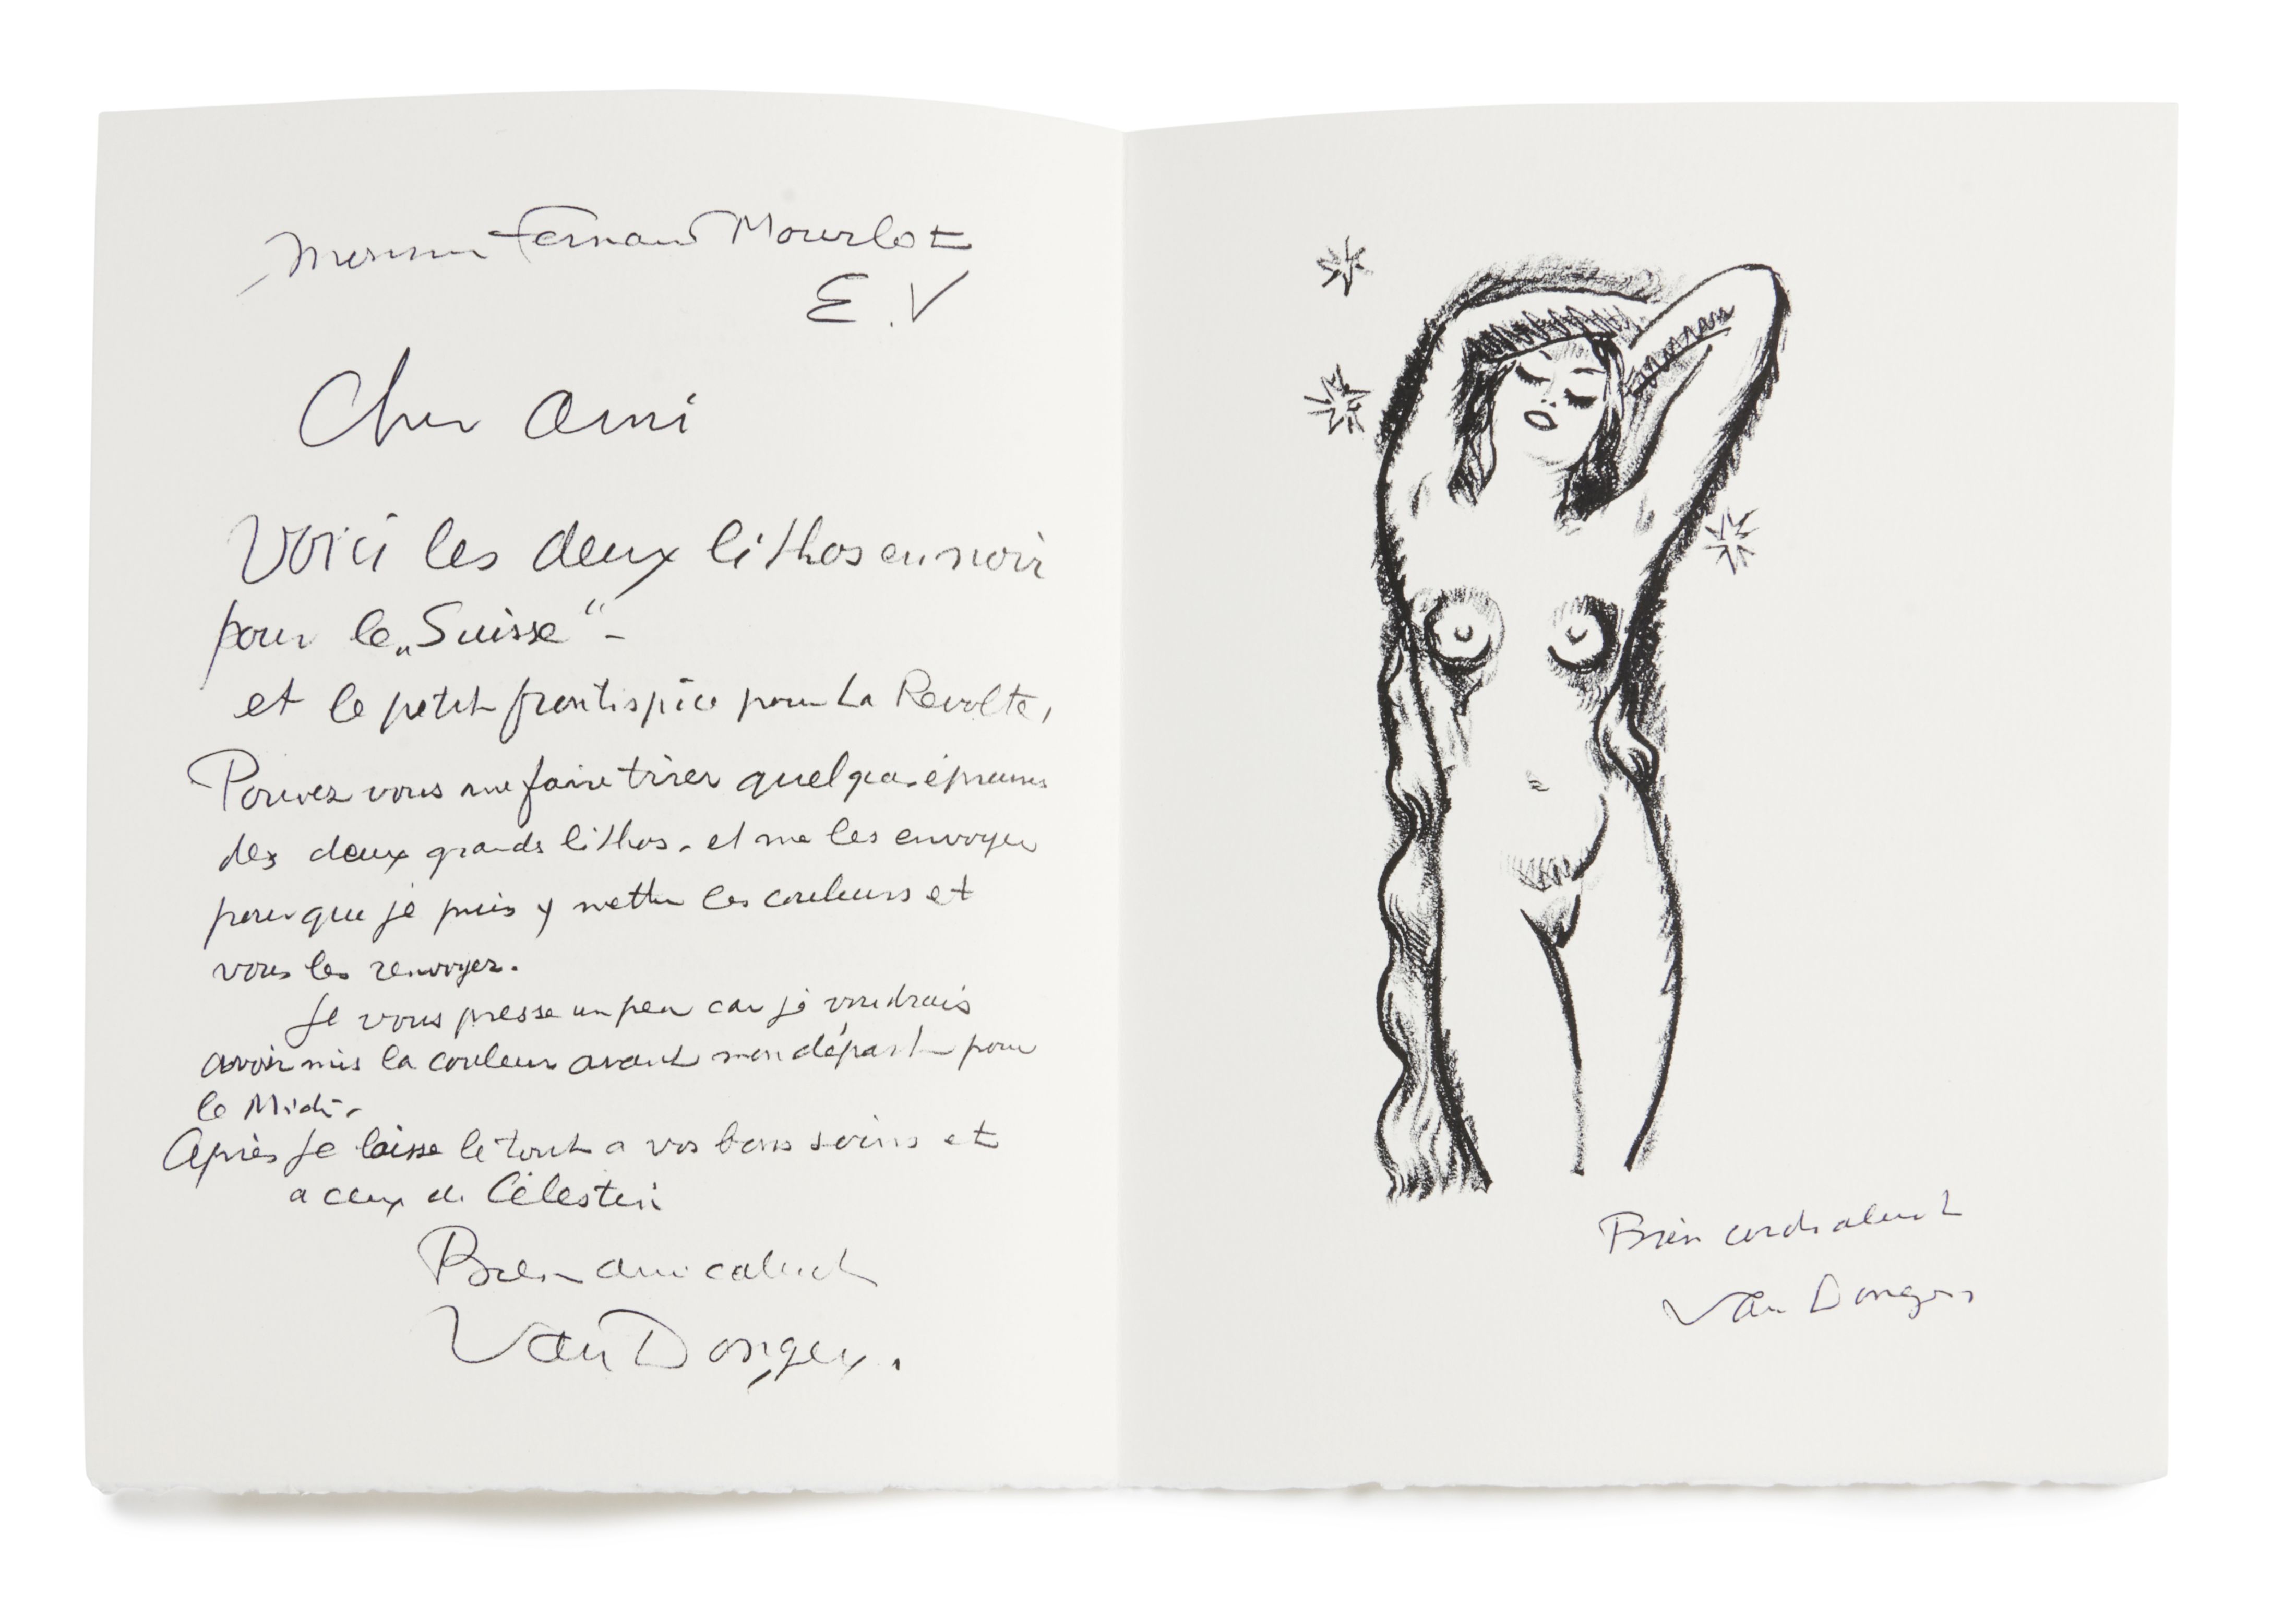 Monsieur Fernand Mourlot
E.V
Cher ami
Voici les deux lithos en noir
pour le „Suisse“ -
et le petit frontispice pour La Revolte,
Pouvez vous me faire tirer quelques épreuves
des deux grands lithos. et me les envoyer
pour que je puis y mettre les couleurs et
vous les renvoyer.
Je vous presse un peu car je voudrais
avoir mis la couleur avant mon départ pour
le Midi.
Après je laisse le tout a vos bons soins et
a ceux de Célestin
Bien amicalement
Van Dongen.
Bien cordialement
Van Dongen